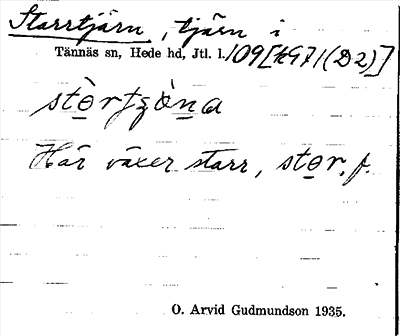 Starrtjärn, tjärn i
Tännäs sn, Hede hd, Jtl. l. 109[H97/(D2)]
Här växer starr, stor, f.
O. Arvid Gudmundson 1935.